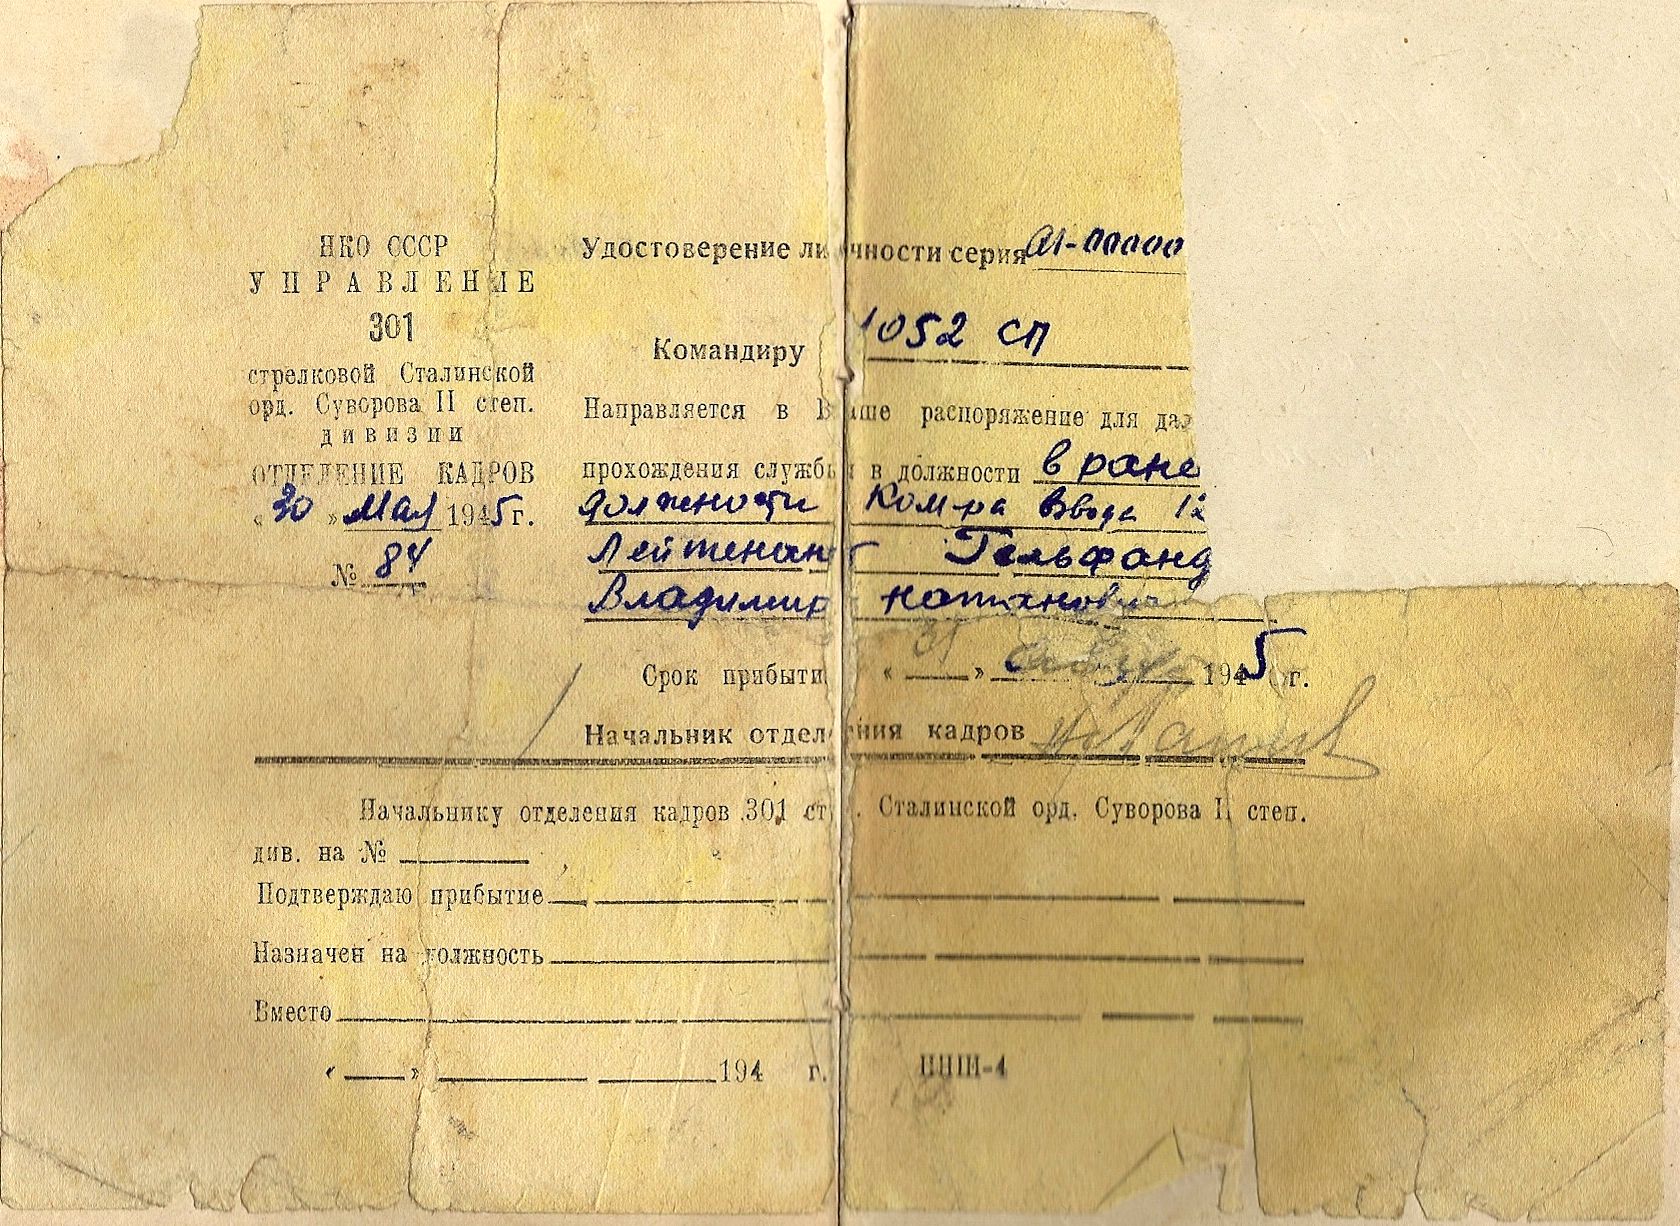 НКО СССР
УПРАВЛЕНИЕ
301
стрелковой Сталинской
орд. Суворова II степ.
дивизии
ОТДЕЛЕНИЕ КАДРОВ
«30» Мая 1945 г.
№ 84
Удостоверение личности серия
Командиру 1052 сп
Направляется в Ваше распоряжение для дал
прохождения службы в должности в ране
должности Ком-ра взвода
Лейтенант Гельфанд
Владимир Натанович
Срок прибыти « 31 » 1945 г.
Начальник отделения кадров
Начальнику отделения кадров 301 ст . Сталинской орд. Суворова II степ.
див. на №
Подтверждаю прибытие
Назначен на должность
Вместо
« » 194 г.
ППШ-4